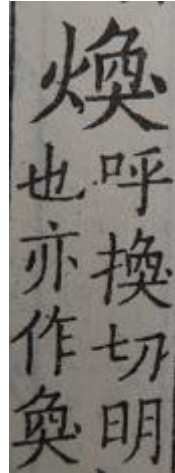 煥
呼換切明
也亦作奐